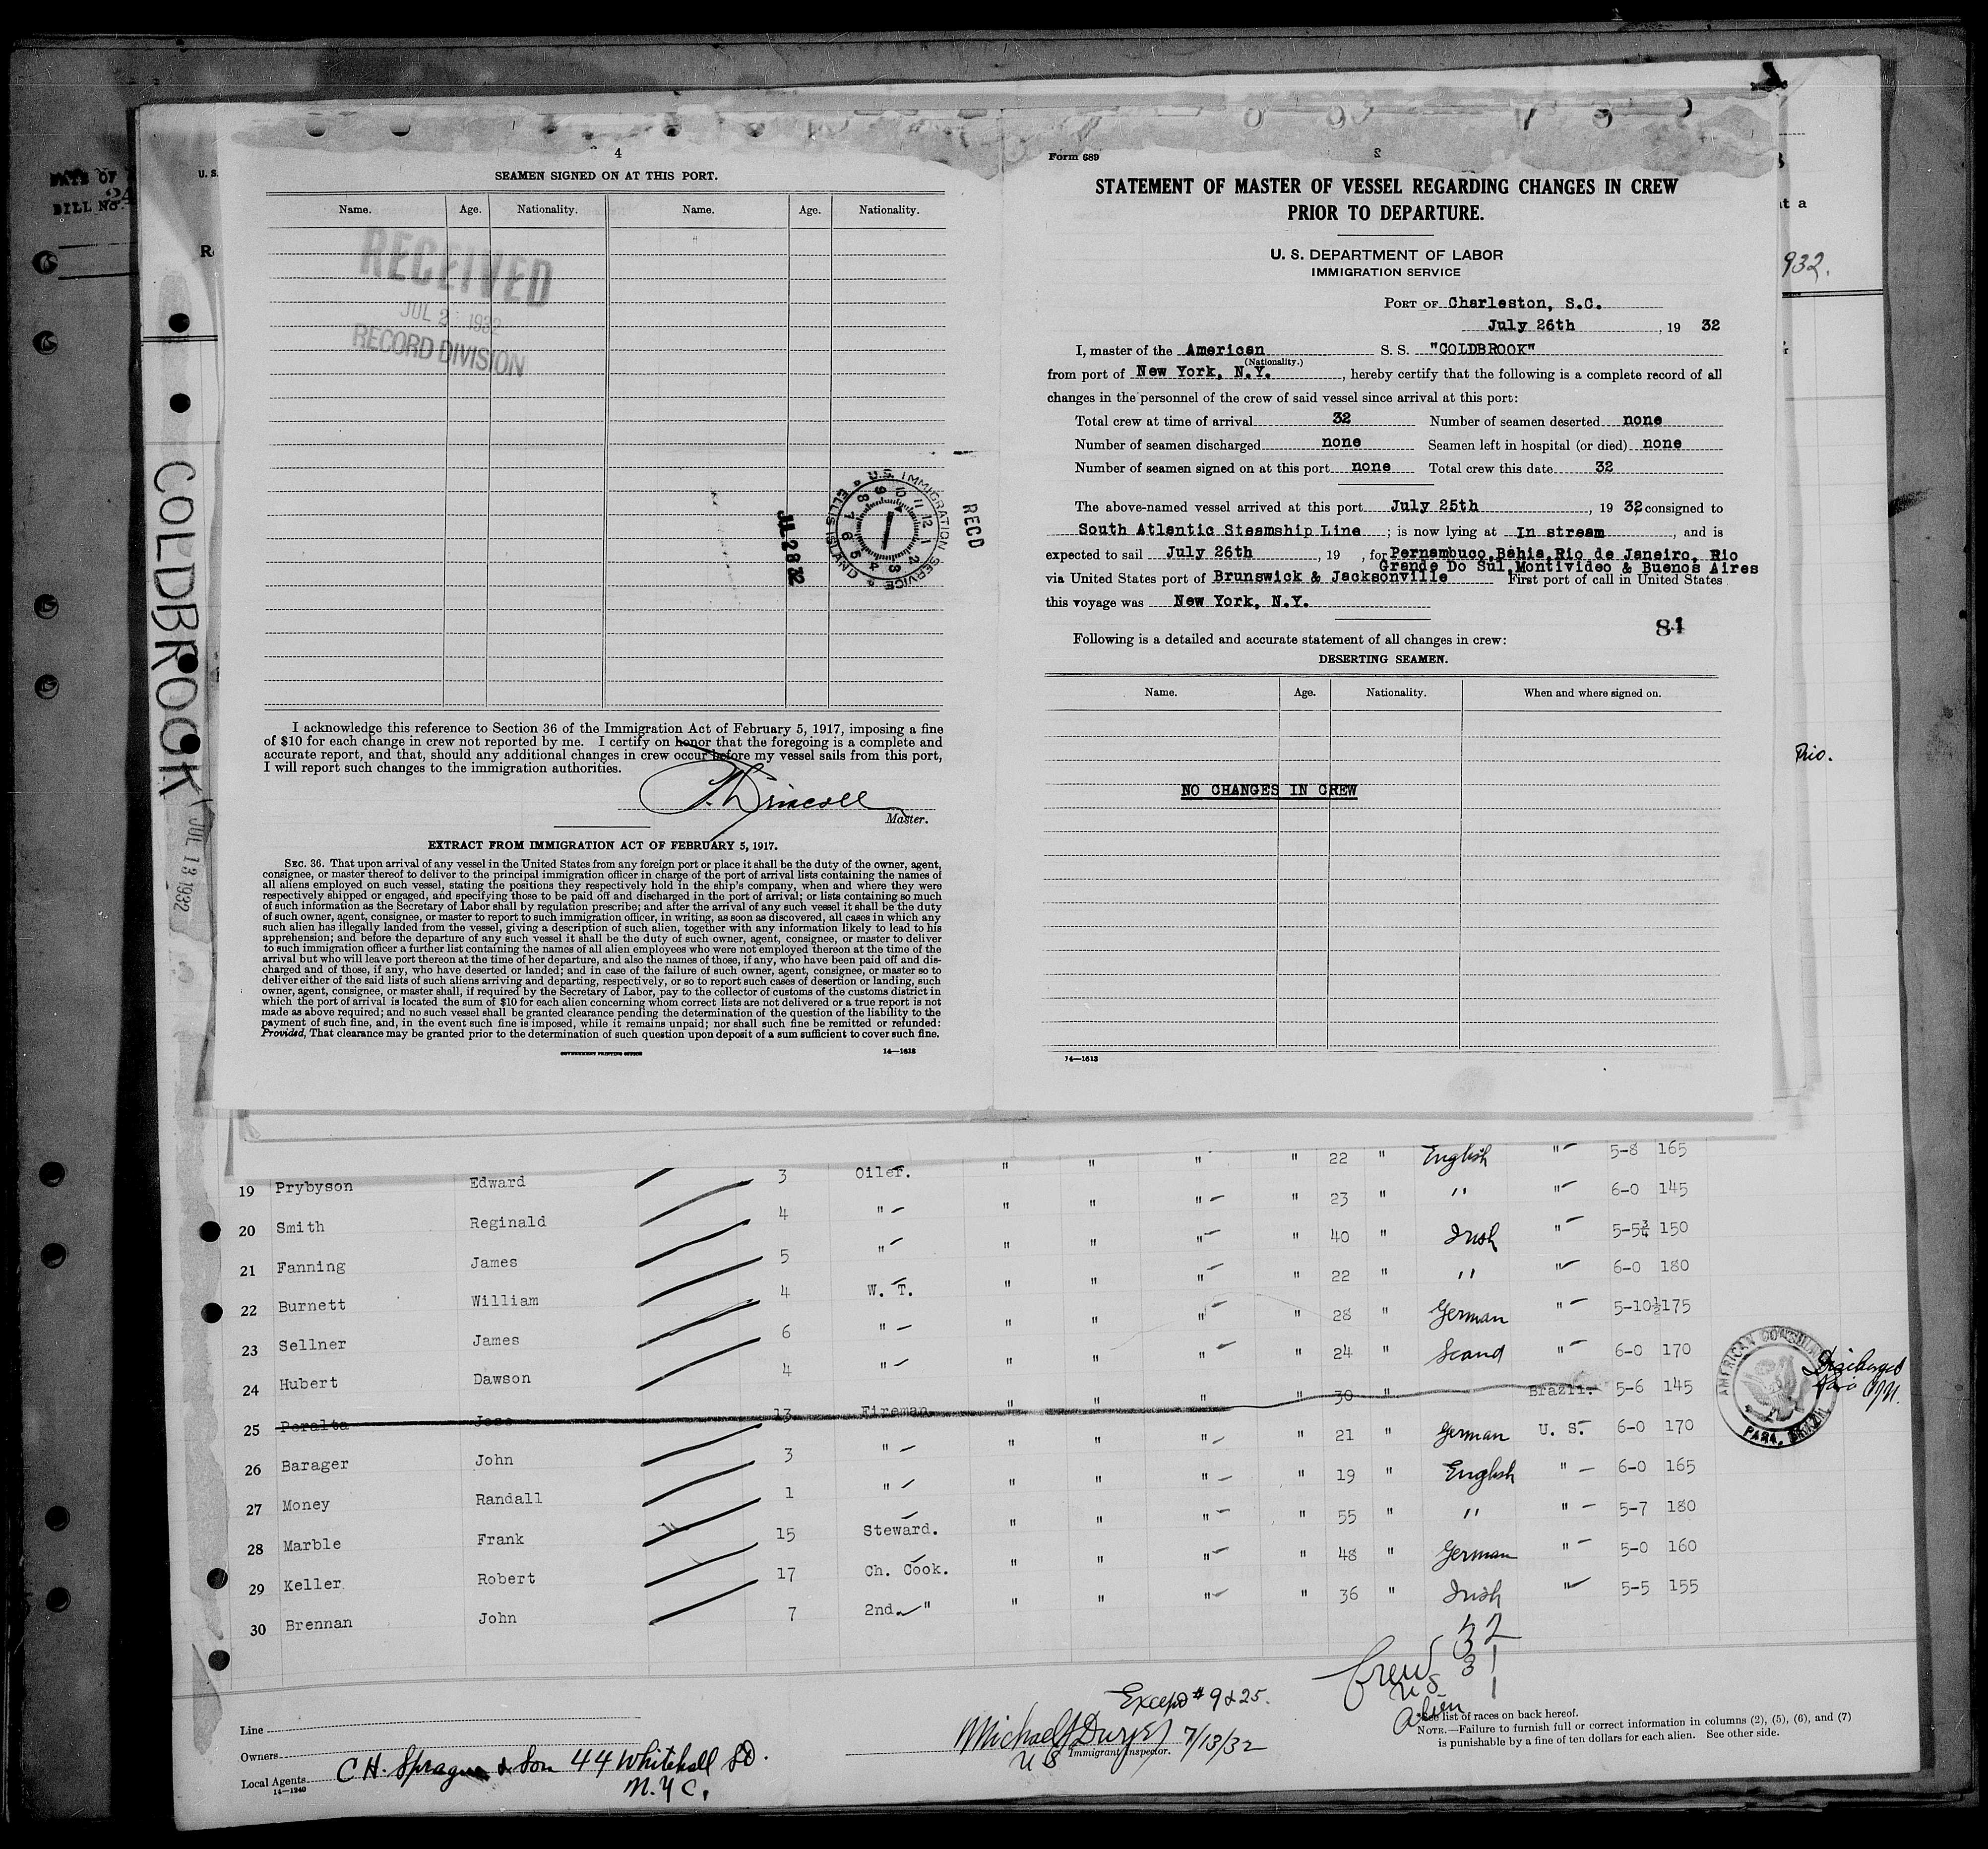 DATE OF
24
BILL No.
U. S.
R
at a
932.
Rio.
COLDBROOK
JUL 13 1932
4
SEAMEN SIGNED ON AT THIS PORT.
Name. Age. Nationality. Name. Age. Nationality.
RECEIVED
JUL 2 1932
RECORD DIVISION
U.S. IMMIGRATION SERVICE ELLIS ISLAND
JUL 28 32
RECD
I acknowledge this reference to Section 36 of the Immigration Act of February 5, 1917, imposing a fine
of $10 for each change in crew not reported by me. I certify on honor that the foregoing is a complete and
accurate report, and that, should any additional changes in crew occur before my vessel sails from this port,
I will report such changes to the immigration authorities.
Driscoll
Master.
EXTRACT FROM IMMIGRATION ACT OF FEBRUARY 5, 1917.
SEC. 36. That upon arrival of any vessel in the United States from any foreign port or place it shall be the duty of the owner, agent,
consignee, or master thereof to deliver to the principal immigration officer in charge of the port of arrival lists containing the names of
all aliens employed on such vessel, stating the positions they respectively hold in the ship's company, when and where they were
respectively shipped or engaged, and specifying those to be paid off and discharged in the port of arrival; or lists containing so much
of such information as the Secretary of Labor shall by regulation prescribe; and after the arrival of any such vessel it shall be the duty
of such owner, agent, consignee, or master to report to such immigration officer, in writing, as soon as discovered, all cases in which any
such alien has illegally landed from the vessel, giving a description of such alien, together with any information likely to lead to his
apprehension; and before the departure of any such vessel it shall be the duty of such owner, agent, consignee, or master to deliver
to such immigration officer a further list containing the names of all alien employees who were not employed thereon at the time of the
arrival but who will leave port thereon at the time of her departure, and also the names of those, if any, who have been paid off and dis-
charged and of those, if any, who have deserted or landed; and in case of the failure of such owner, agent, consignee, or master so to
deliver either of the said lists of such aliens arriving and departing, respectively, or so to report such cases of desertion or landing, such
owner, agent, consignee, or master shall, if required by the Secretary of Labor, pay to the collector of customs of the customs district in
which the port of arrival is located the sum of $10 for each alien concerning whom correct lists are not delivered or a true report is not
made as above required; and no such vessel shall be granted clearance pending the determination of the question of the liability to the
payment of such fine, and, in the event such fine is imposed, while it remains unpaid; nor shall such fine be remitted or refunded:
Provided, That clearance may be granted prior to the determination of such question upon deposit of a sum sufficient to cover such fine.
GOVERNMENT PRINTING OFFICE 14—1613
Form 689
2
STATEMENT OF MASTER OF VESSEL REGARDING CHANGES IN CREW
PRIOR TO DEPARTURE.
U. S. DEPARTMENT OF LABOR
IMMIGRATION SERVICE
PORT OF Charleston, S.C.
July 26th, 19 32
I, master of the American S. S. "COLDBROOK"
(Nationality.)
from port of New York, N.Y., hereby certify that the following is a complete record of all
changes in the personnel of the crew of said vessel since arrival at this port:
Total crew at time of arrival 32 Number of seamen deserted none
Number of seamen discharged none Seamen left in hospital (or died) none
Number of seamen signed on at this port none Total crew this date 32
The above-named vessel arrived at this port July 25th, 19 32 consigned to
South Atlantic Steamship Line; is now lying at In stream, and is
expected to sail July 26th, 19 , for Pernambuco, Bahia, Rio de Janeiro, Rio
Grande Do Sul, Montivideo & Buenos Aires
via United States port of Brunswick & Jacksonville First port of call in United States
this voyage was New York, N.Y.
84
Following is a detailed and accurate statement of all changes in crew:
DESERTING SEAMEN.
Name. Age. Nationality. When and where signed on.
NO CHANGES IN CREW
14—1613
19 Prybyson Edward 3 Oiler. " " " " 22 " English " 5-8 165
20 Smith Reginald 4 " " " " " 23 " " " 6-0 145
21 Fanning James 5 " " " " " 40 " Irish " 5-5¾ 150
22 Burnett William 4 W. T. " " " " 22 " " " 6-0 180
23 Sellner James 6 " " " " " 28 " German " 5-10½ 175
24 Hubert Dawson 4 " " " " " 24 " Scand " 6-0 170
25 Peralta Jose 13 Fireman " " " " 30 " Brazil. 5-6 145
AMERICAN CONSULATE PARA, BRAZIL
Discharged
26 Barager John 3 " " " " " 21 " German U. S. 6-0 170
27 Money Randall 1 " " " " " 19 " English " 6-0 165
28 Marble Frank 15 Steward. " " " " 55 " " " 5-7 180
29 Keller Robert 17 Ch. Cook. " " " " 48 " German " 5-0 160
30 Brennan John 7 2nd. " " " " " 36 " Irish " 5-5 155
Crew 32
US 31
Alien 1
Except # 9 & 25.
Line
Owners
Local Agents C H. Sprague & Son 44 Whitehall St.
N. Y C.
14—1240
7/13/32
U S Immigrant Inspector.
See list of races on back hereof.
NOTE.—Failure to furnish full or correct information in columns (2), (5), (6), and (7)
is punishable by a fine of ten dollars for each alien. See other side.